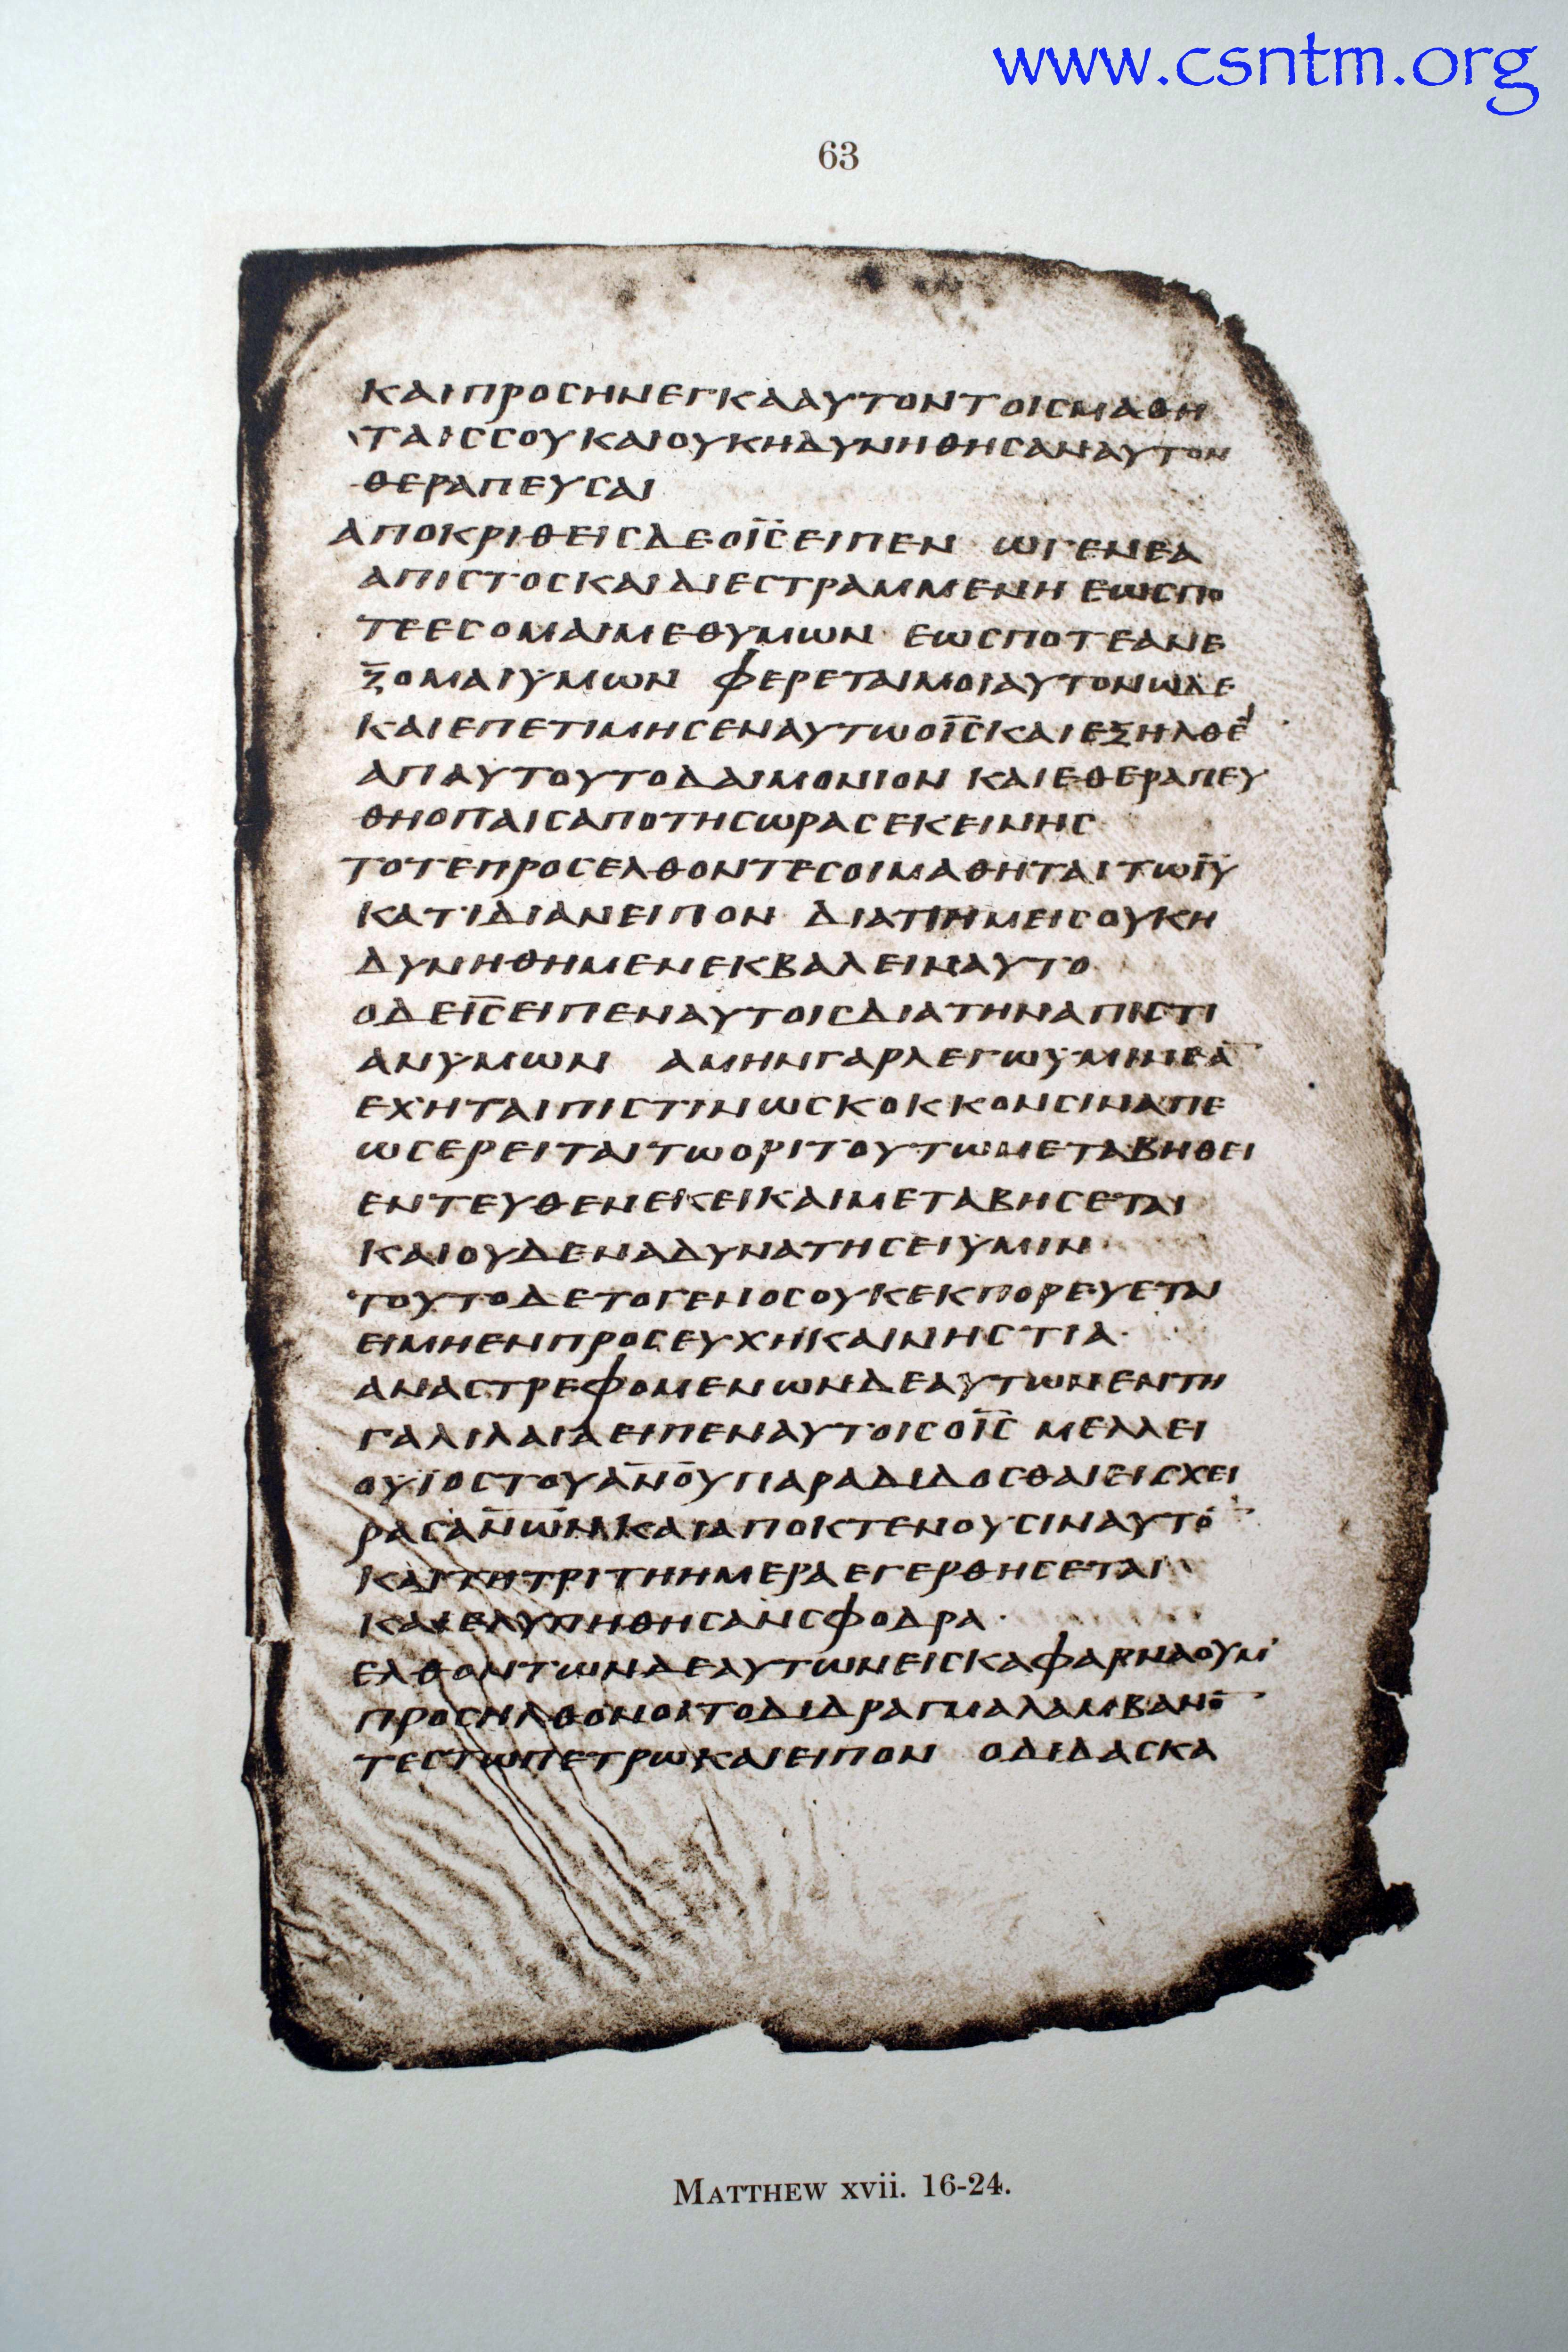 www.csntm.org
63
ΚΑΙΠΡΟСΗΝΕΓΚΑΑΥΤΟΝΤΟΙСΜΑΘΗ
ΤΑΙССΟΥΚΑΙΟΥΚΗΔΥΝΗΘΗСΑΝΑΥΤΟΝ
ΘΕΡΑΠΕΥСΑΙ
ΑΠΟΚΡΙΘΕΙСΔΕΟΙ̅С̅ΕΙΠΕΝ ωΓΕΝΕΑ
ΑΠΙСΤΟСΚΑΙΔΙΕСΤΡΑΜΜΕΝΗ ΕωСΠΟ
ΤΕΕСΟΜΑΙΜΕΘΥΜωΝ· ΕωСΠΟΤΕΑΝΕ
ΞΟΜΑΙΥΜωΝ ΦΕΡΕΤΑΙΜΟΙΑΥΤΟΝωΔΕ
ΚΑΙΕΠΕΤΙΜΗСΕΝΑΥΤωΟΙ̅С̅ΚΑΙΕΞΗΛΘΕ̅
ΑΠΑΥΤΟΥΤΟΔΑΙΜΟΝΙΟΝ ΚΑΙΕΘΕΡΑΠΕΥ
ΘΗΟΠΑΙСΑΠΟΤΗСωΡΑСΕΚΕΙΝΗС
ΤΟΤΕΠΡΟСΕΛΘΟΝΤΕСΟΙΜΑΘΗΤΑΙΤωΙ̅Υ̅
ΚΑΤΙΔΙΑΝΕΙΠΟΝ ΔΙΑΤΙΗΜΕΙСΟΥΚΗ
ΔΥΝΗΘΗΜΕΝΕΚΒΑΛΕΙΝΑΥΤΟ
ΟΔΕΙ̅С̅ΕΙΠΕΝΑΥΤΟΙСΔΙΑΤΗΝΑΠΙСΤΙ
ΑΝΥΜωΝ ΑΜΗΝΓΑΡΛΕΓωΥΜΙΝΕΑ̅
ΕΧΗΤΑΙΠΙСΤΙΝωСΚΟΚΚΟΝСΙΝΑΠΕ
ωСΕΡΕΙΤΑΙΤωΟΡΙΤΟΥΤωΜΕΤΑΒΗΘΕΙ
ΕΝΤΕΥΘΕΝΕΚΕΙΚΑΙΜΕΤΑΒΗСΕΤΑΙ
ΚΑΙΟΥΔΕΝΑΔΥΝΑΤΗСΕΙΥΜΙΝ·
ΤΟΥΤΟΔΕΤΟΓΕΝΟСΟΥΚΕΚΠΟΡΕΥΕΤΑΙ
ΕΙΜΗΕΝΠΡΟСΕΥΧΗΚΑΙΝΗСΤΙΑ·
ΑΝΑСΤΡΕΦΟΜΕΝωΝΔΕΑΥΤωΝΕΝΤΗ
ΓΑΛΙΛΑΙΑΕΙΠΕΝΑΥΤΟΙСΟΙ̅С̅ ΜΕΛΛΕΙ
ΟΥΙΟСΤΟΥΑ̅Ν̅Ο̅Υ̅ΠΑΡΑΔΙΔΟСΘΑΙΕΙСΧΕΙ
ΡΑСΑ̅Ν̅ω̅Ν̅ΚΑΙΑΠΟΚΤΕΝΟΥСΙΝΑΥΤΟ̅
ΚΑΙΤΗΤΡΙΤΗΗΜΕΡΑΕΓΕΡΘΗСΕΤΑΙ
ΚΑΙΕΛΥΠΗΘΗСΑΝСΦΟΔΡΑ·
ΕΛΘΟΝΤωΝΔΕΑΥΤωΝΕΙСΚΑΦΑΡΝΑΟΥΜ
ΠΡΟСΗΛΘΟΝΟΙΤΟΔΙΔΡΑΓΜΑΛΑΜΒΑΝΟ̅
ΤΕСΤωΠΕΤΡωΚΑΙΕΙΠΟΝ ΟΔΙΔΑСΚΑ
MATTHEW xvii. 16-24.